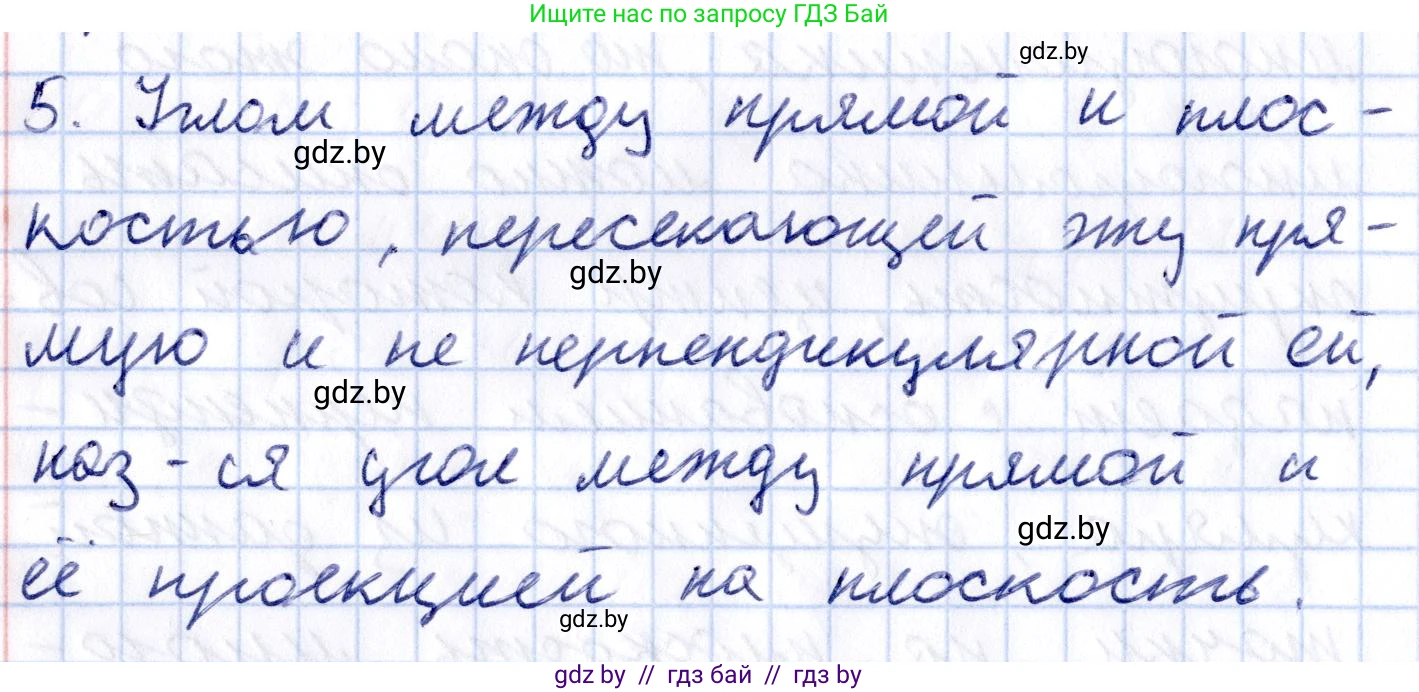 Ищите нас по запросу ГДЗ Бай
gdz.by
5. Углом между прямой и плос-
gdz.by
костью, пересекающей эту пря-
gdz.by
мую и не перпендикулярной ей,
gdz.by
наз-ся угол между прямой и
gdz.by
её проекцией на плоскость.
gdz.by
gdz.by // гдз бай // гдз by